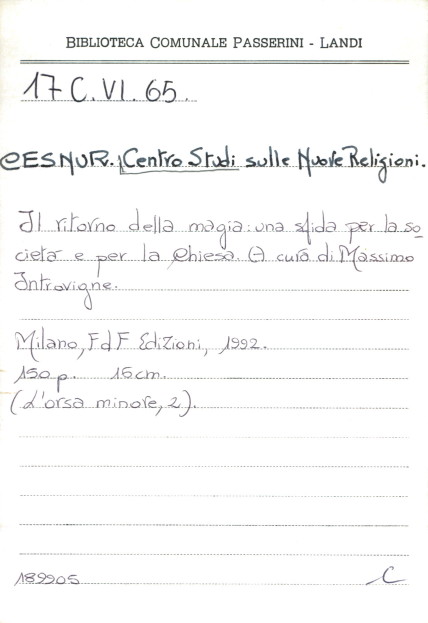 BIBLIOTECA COMUNALE PASSERINI - LANDI
17 C. VI. 65.
CESNUR. Centro Studi sulle Nuove Religioni.
Il ritorno della magia: una sfida per la so-
cietà e per la Chiesa. A cura di Massimo
Introvigne.
Milano, EdF Edizioni, 1992.
150 p. 15 cm.
(L'orsa minore, 2).
189905 C